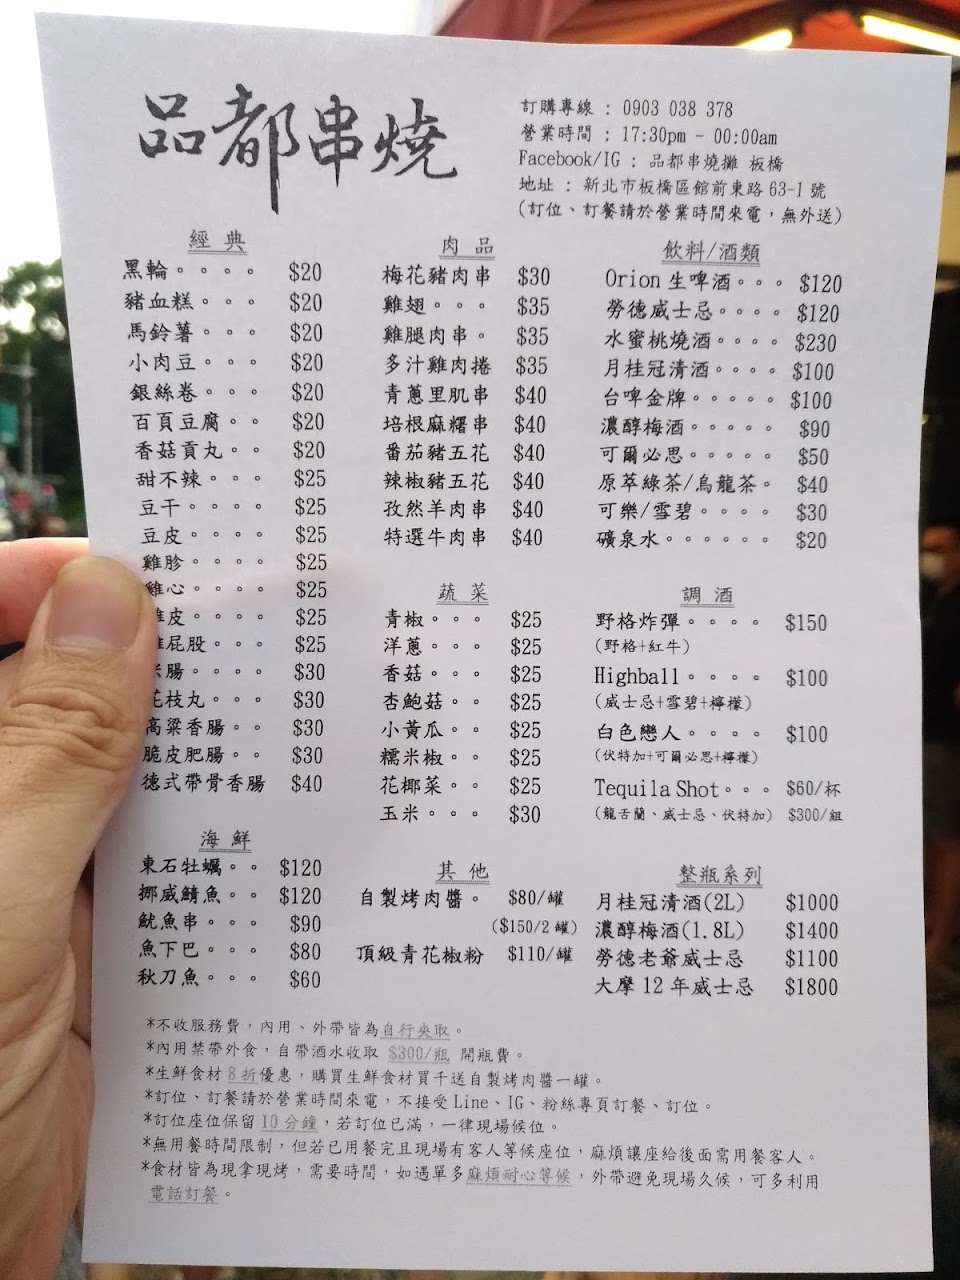 品都串燒
訂購專線 : 0903 038 378
營業時間 : 17:30pm - 00:00am
Facebook/IG : 品都串燒攤 板橋
地址 : 新北市板橋區館前東路 63-1 號
(訂位、訂餐請於營業時間來電，無外送)
經 典
黑輪。。。。 $20
豬血糕。。。 $20
馬鈴薯。。。 $20
小肉豆。。。 $20
銀絲卷。。。 $20
百頁豆腐。。 $20
香菇貢丸。。 $20
甜不辣。。。 $25
豆干。。。。 $25
豆皮。。。。 $25
雞胗。。。。 $25
雞心。。。。 $25
皮。。。。 $25
屁股。。。 $25
腸。。。。 $30
花枝丸。。。 $30
高粱香腸。。 $30
脆皮肥腸。。 $30
德式帶骨香腸 $40
海 鮮
東石牡蠣。。 $120
挪威鯖魚。。 $120
魷魚串。。。 $90
魚下巴。。。 $80
秋刀魚。。。 $60
肉 品
梅花豬肉串 $30
雞翅。。。 $35
雞腿肉串。 $35
多汁雞肉捲 $35
青蔥里肌串 $40
培根麻糬串 $40
番茄豬五花 $40
辣椒豬五花 $40
孜然羊肉串 $40
特選牛肉串 $40
蔬 菜
青椒。。。 $25
洋蔥。。。 $25
香菇。。。 $25
杏鮑菇。。 $25
小黃瓜。。 $25
糯米椒。。 $25
花椰菜。。 $25
玉米。。。 $30
其 他
自製烤肉醬。 $80/罐
($150/2 罐)
頂級青花椒粉 $110/罐
飲料/酒類
Orion 生啤酒。。。 $120
勞德威士忌。。。。 $120
水蜜桃燒酒。。。。 $230
月桂冠清酒。。。。 $100
台啤金牌。。。。。 $100
濃醇梅酒。。。。。 $90
可爾必思。。。。。 $50
原萃綠茶/烏龍茶。 $40
可樂/雪碧。。。。 $30
礦泉水。。。。。。 $20
調 酒
野格炸彈。。。。 $150
(野格+紅牛)
Highball。。。。 $100
(威士忌+雪碧+檸檬)
白色戀人。。。。 $100
(伏特加+可爾必思+檸檬)
Tequila Shot。。。 $60/杯
(龍舌蘭、威士忌、伏特加) $300/組
整瓶系列
月桂冠清酒(2L) $1000
濃醇梅酒(1.8L) $1400
勞德老爺威士忌 $1100
大摩 12 年威士忌 $1800
*不收服務費，內用、外帶皆為自行夾取。
*內用禁帶外食，自帶酒水收取 $300/瓶 開瓶費。
*生鮮食材 8 折優惠，購買生鮮食材買千送自製烤肉醬一罐。
*訂位、訂餐請於營業時間來電，不接受 Line、IG、粉絲專頁訂餐、訂位。
*訂位座位保留 10 分鐘，若訂位已滿，一律現場候位。
*無用餐時間限制，但若已用餐完且現場有客人等候座位，麻煩讓座給後面需用餐客人。
*食材皆為現拿現烤，需要時間，如遇單多麻煩耐心等候，外帶避免現場久候，可多利用
電話訂餐。